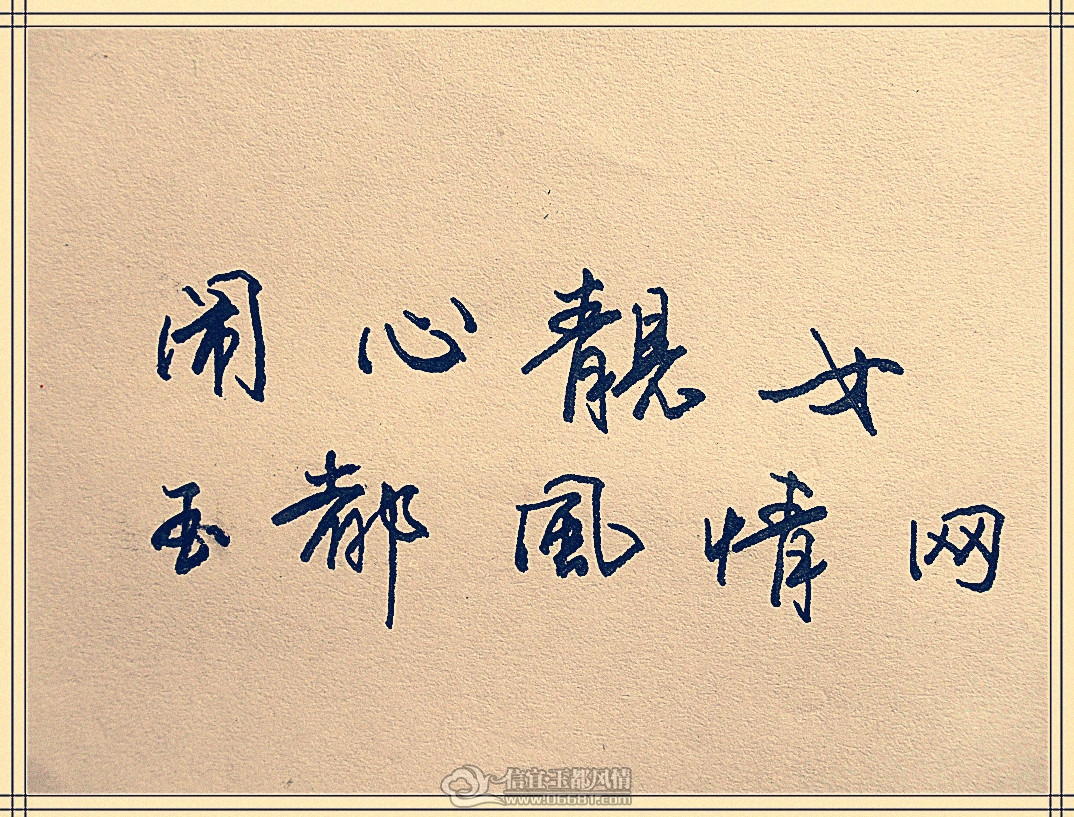 闹心靚女
玉都風情网
信宜玉都风情
www.06681.com